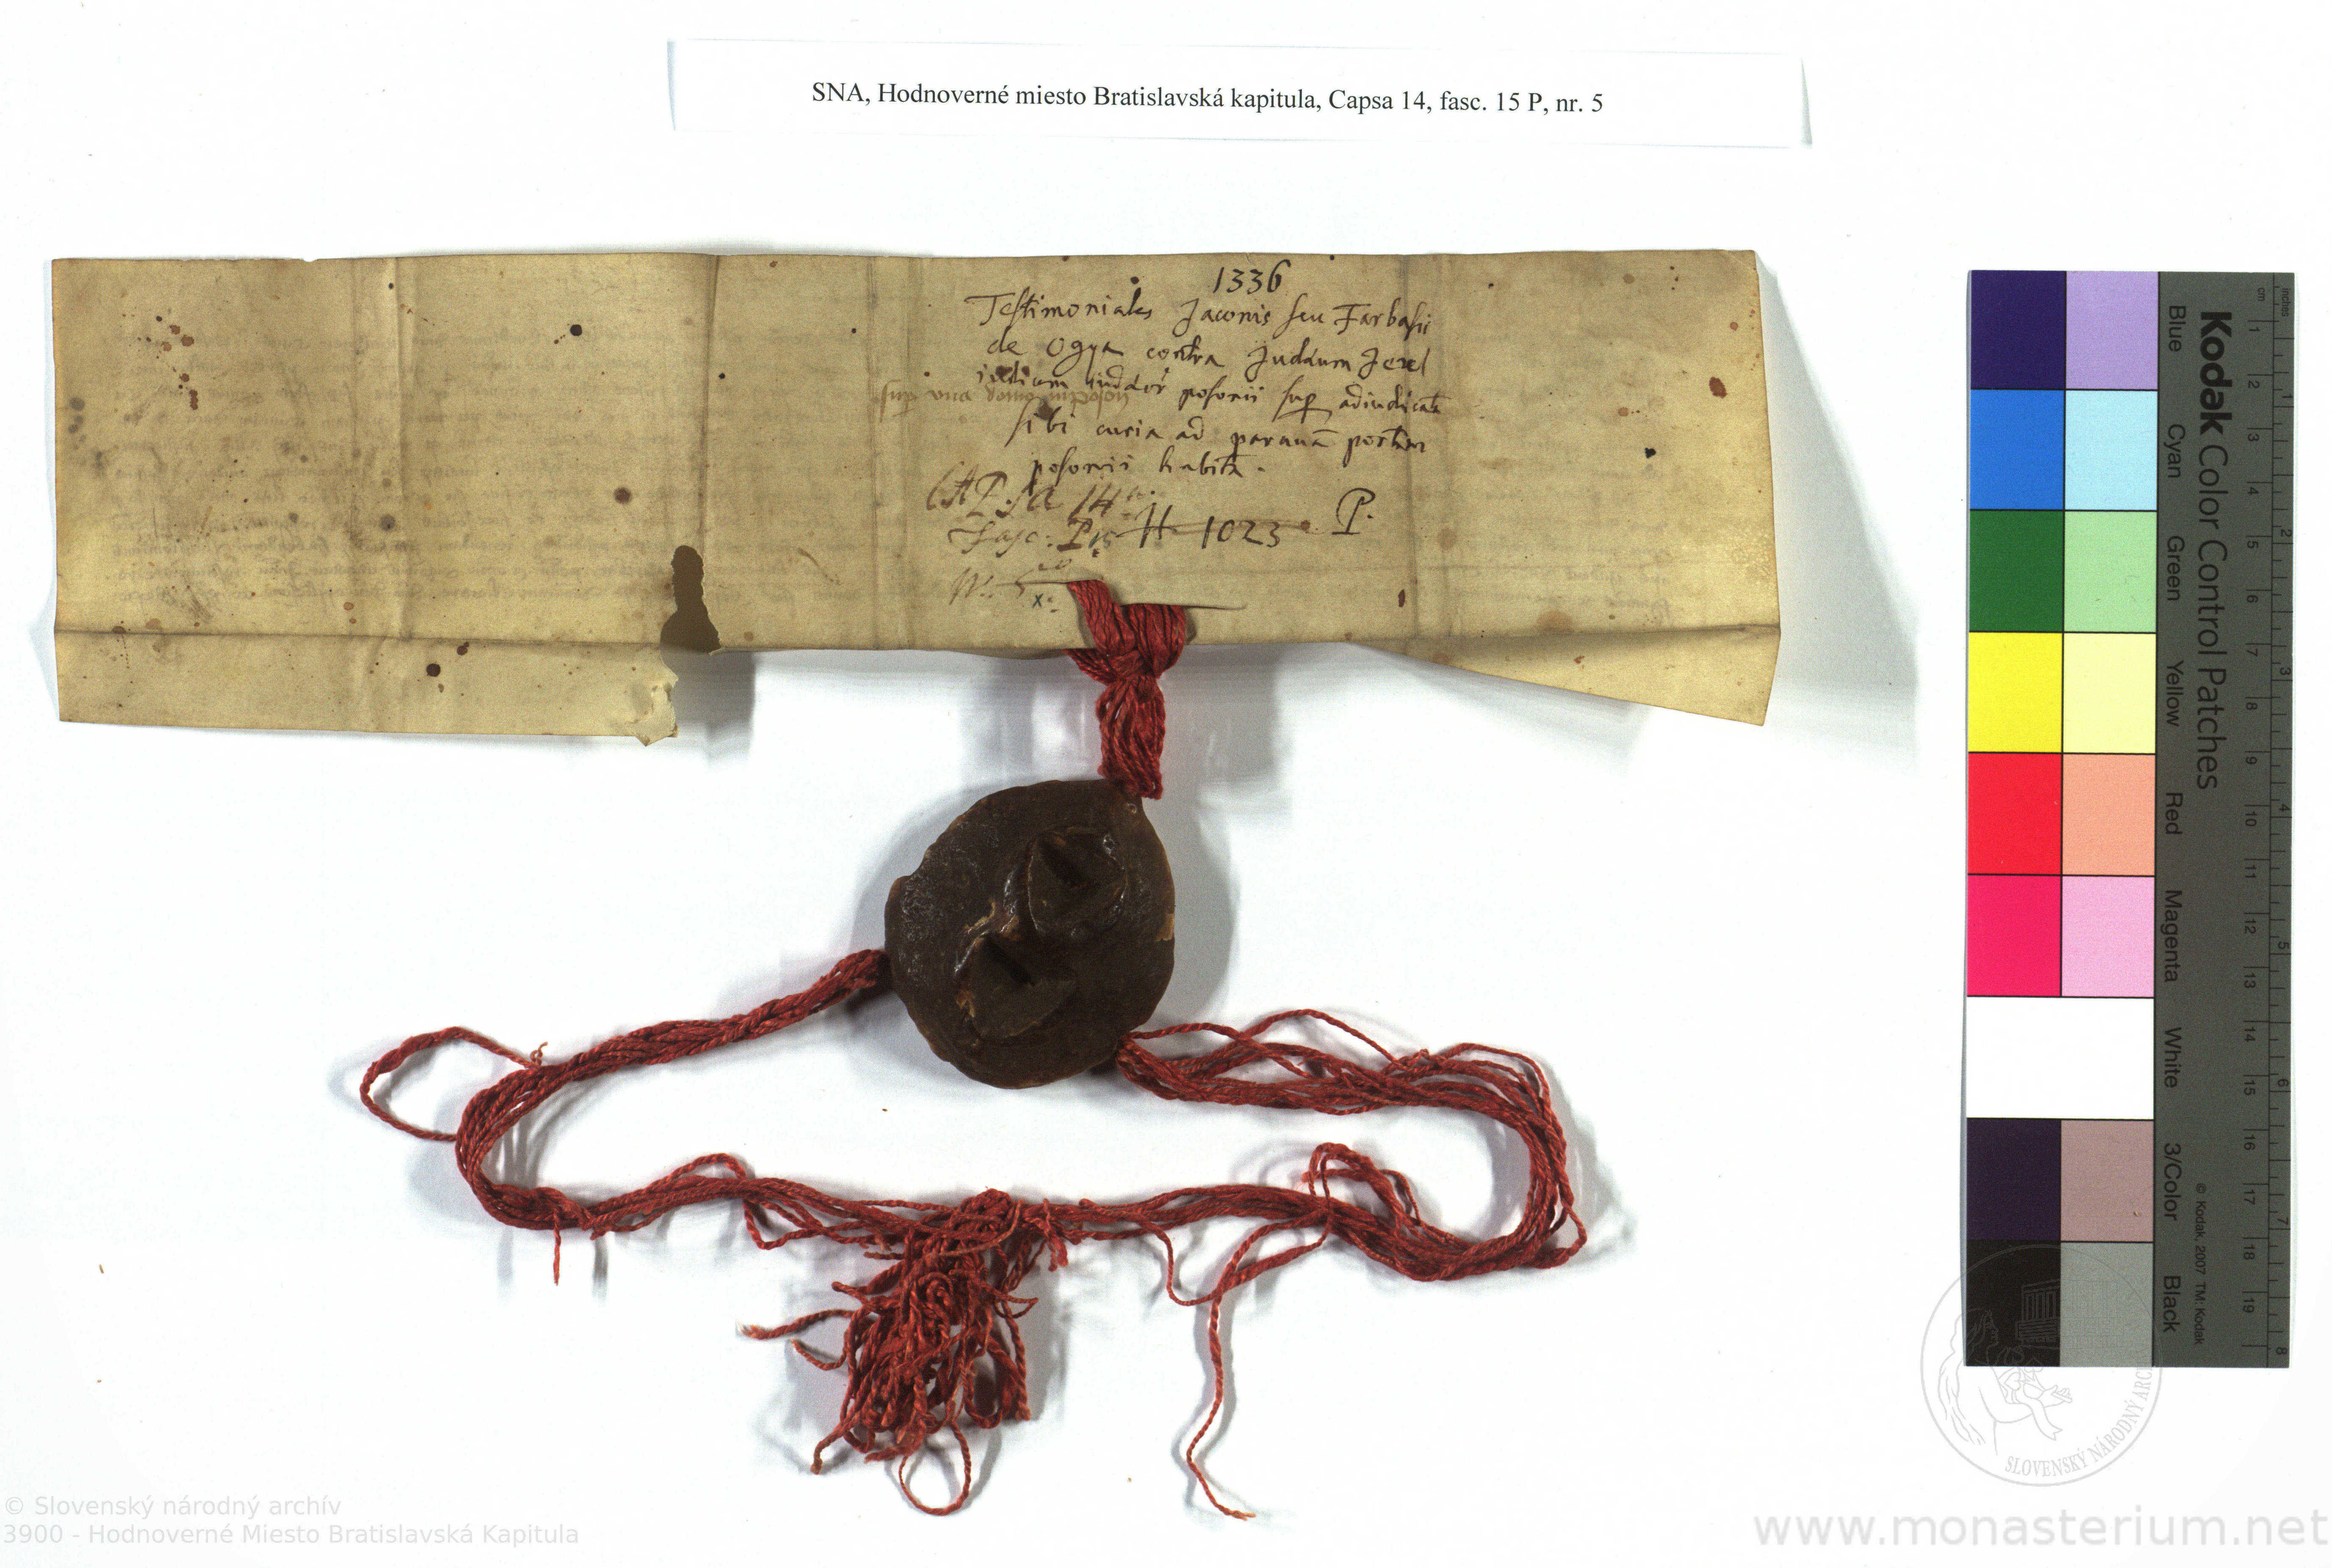 SNA, Hodnoverné miesto Bratislavská kapitula, Capsa 14, fasc. 15 P, nr. 5
1336
Testimoniales Jaconis seu Farbasii
de Ogya contra Judäum
posonii sup adiudicata
sup una domo in poson
sibi curia ad paruam portam
posonii habita.
CAPSA 14
Fasc: P 15 H 1023 P.
N: 5
x
Kodak Color Control Patches
Blue Cyan Green Yellow Red Magenta White 3/Color Black
© Kodak, 2007 TM: Kodak
cm 1 2 3 4 5 6 7 8 9 10 11 12 13 14 15 16 17 18 19
inches 1 2 3 4 5 6 7 8
SLOVENSKÝ NÁRODNÝ ARC
© Slovenský národný archív
3900 - Hodnoverné Miesto Bratislavská Kapitula
www.monasterium.net